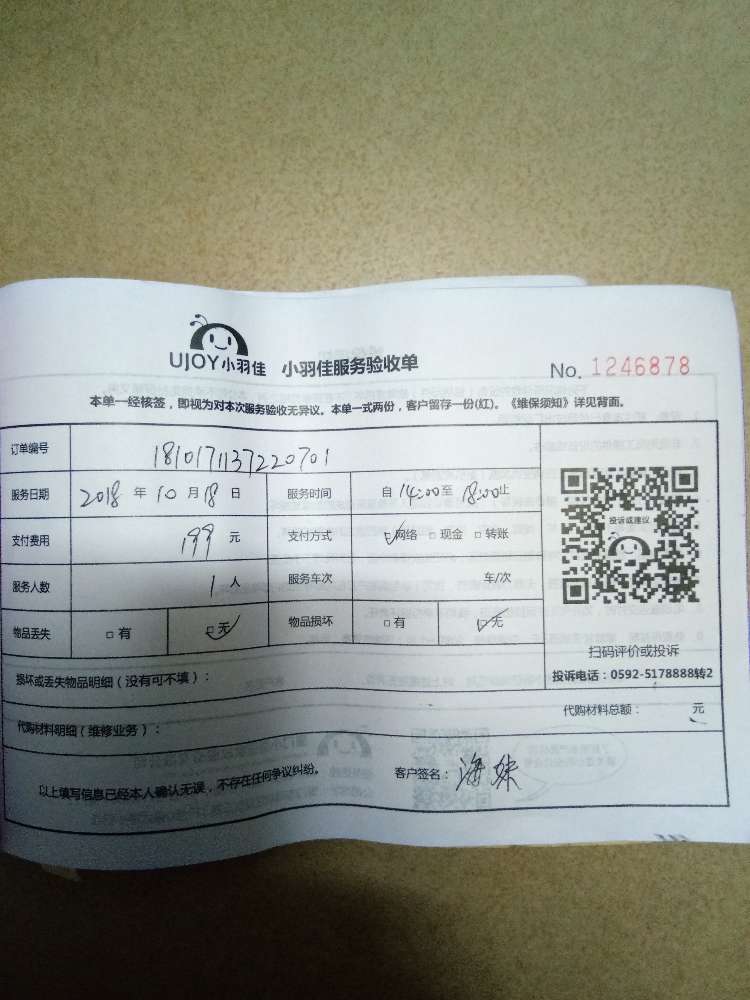 UJOY小羽佳 小羽佳服务验收单 No. 1246878
本单一经核签，即视为对本次服务验收无异议。本单一式两份，客户留存一份(红)。《维保须知》详见背面。
订单编号 1810171137220701
服务日期 2018 年 10 月 18 日 服务时间 自 14:00 至 18:00 止
支付费用 199 元 支付方式 ☑网络 □现金 □转账
服务人数 1 人 服务车次 车/次
物品丢失 □有 ☑无 物品损坏 □有 ☑无
投诉或建议
扫码评价或投诉
投诉电话：0592-5178888转2
损坏或丢失物品明细（没有可不填）：
代购材料明细（维修业务）： 代购材料总额： 元
以上填写信息已经本人确认无误，不存在任何争议纠纷。 客户签名：海妹